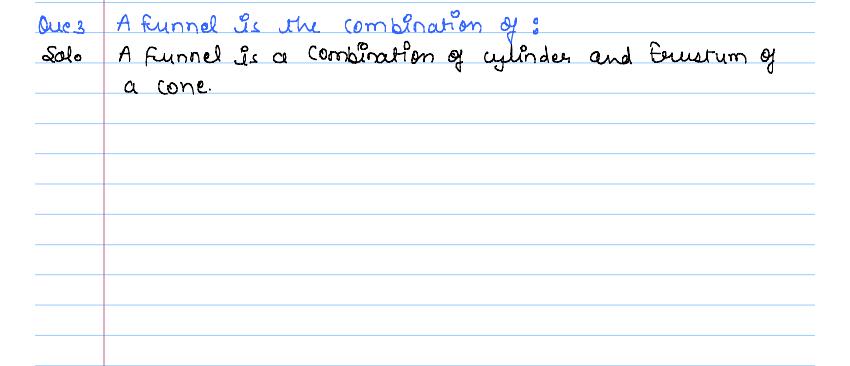 Que 3 A funnel is the combination of :
Solo A funnel is a combination of cylinder and frustum of
a cone.